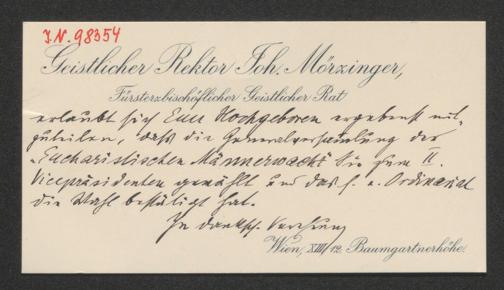 J.N. 98354
Geistlicher Rektor Joh. Mörzinger,
Fürsterzbischöflicher Geistlicher Rat
erlaubt sich Euer Hochgeboren ergebenst mit-
zuteilen, daß die Generalversammlung der
"Eucharistischen Männerwacht" Sie zum II.
Vicepräsidenten gewählt und das f. e. Ordinariat
die Wahl bestätigt hat.
In dankb. Verehrung
Wien, XIII/12. Baumgartnerhöhe.